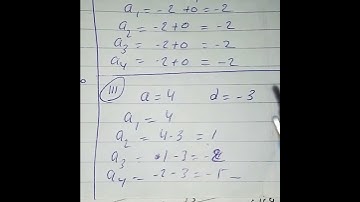 a1 = -2 +0 = -2
a2 = -2+0 = -2
a3 = -2+0 = -2
a4 = -2+0 = -2
III
a = 4 d = -3
a1 = 4
a2 = 4-3 = 1
a3 = 1-3 = -2
a4 = -2-3 = -5